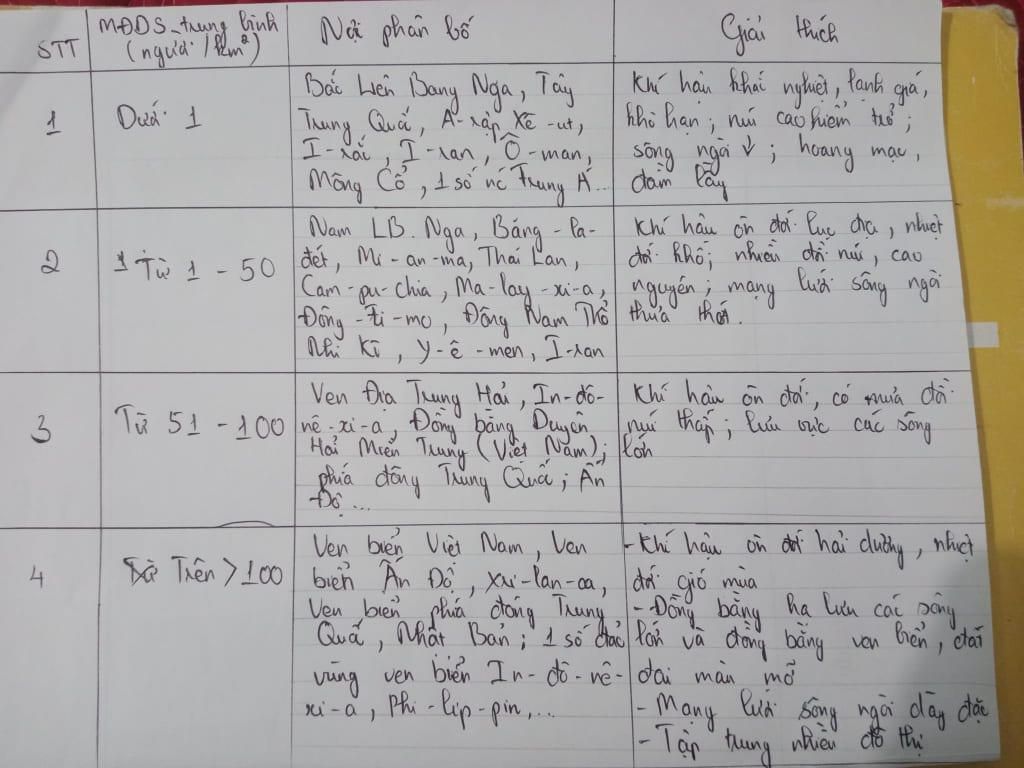 STT
MĐDS_trung bình
(người /km²)
Nơi phân bố
Giải thích
1
Dưới 1
Bắc Liên Bang Nga, Tây
Trung Quốc, A-rập Xê-ut,
I-rắc, I-ran, Ô-man,
Mông Cổ, 1 số nc Trung Á...
Khí hậu khắc nghiệt, lạnh giá,
khô hạn; núi cao hiểm trở;
sông ngòi ↓; hoang mạc,
đầm lầy
2
Từ 1 - 50
Nam LB. Nga, Băng-la-
đét, Mi-an-ma, Thái Lan,
Cam-pu-chia, Ma-lay-xi-a,
Đông-ti-mo, Đông Nam Thổ
Nhĩ Kì, Y-ê-men, I-ran
Khí hậu ôn đới lục địa, nhiệt
đới khô; nhiều đồi núi, cao
nguyên; mạng lưới sông ngòi
thưa thớt.
3
Từ 51 - 100
Ven Địa Trung Hải, In-đô-
nê-xi-a, Đồng bằng Duyên
Hải Miền Trung (Việt Nam);
phía đông Trung Quốc; Ấn
Độ...
Khí hậu ôn đới, có mưa đồi
núi thấp; lưu vực các sông
lớn
4
Trên > 100
Ven biển Việt Nam, Ven
biển Ấn Độ, Xri-lan-ca,
Ven biển phía đông Trung
Quốc, Nhật Bản; 1 số đảo
vùng ven biển In-đô-nê-
xi-a, Phi-lip-pin,...
- Khí hậu ôn đới hải dương, nhiệt
đới gió mùa
- Đồng bằng hạ lưu các sông
lớn và đồng bằng ven biển, đất
đai màn mỡ
- Mạng lưới sông ngòi dày đặc
- Tập trung nhiều đô thị